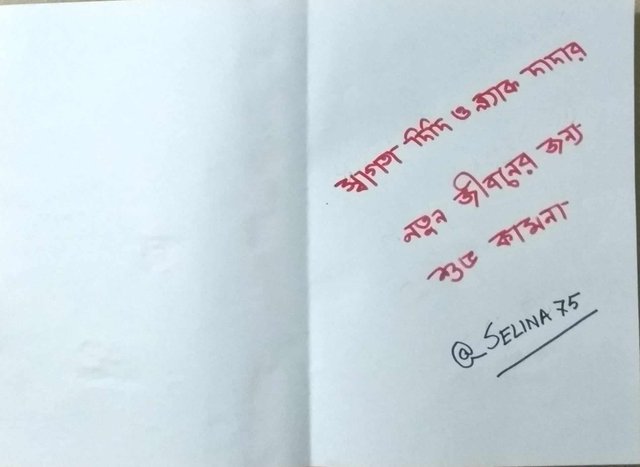 স্বাগতা দিদি ও ব্ল্যাক দাদার
নতুন জীবনের জন্য
শুভ কামনা
@SELINA75